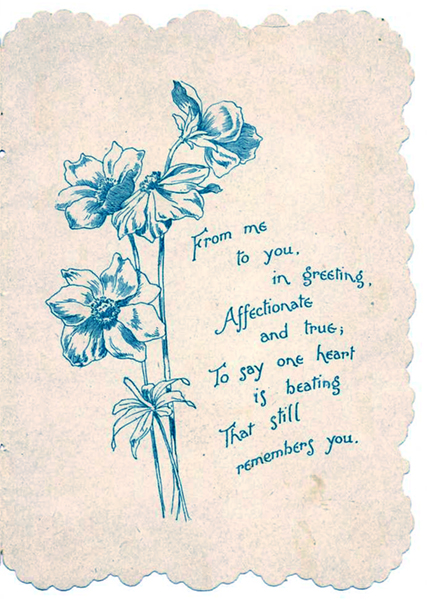 From me
to you,
in greeting,
Affectionate
and true;
To say one heart
is beating
That still
remembers you.